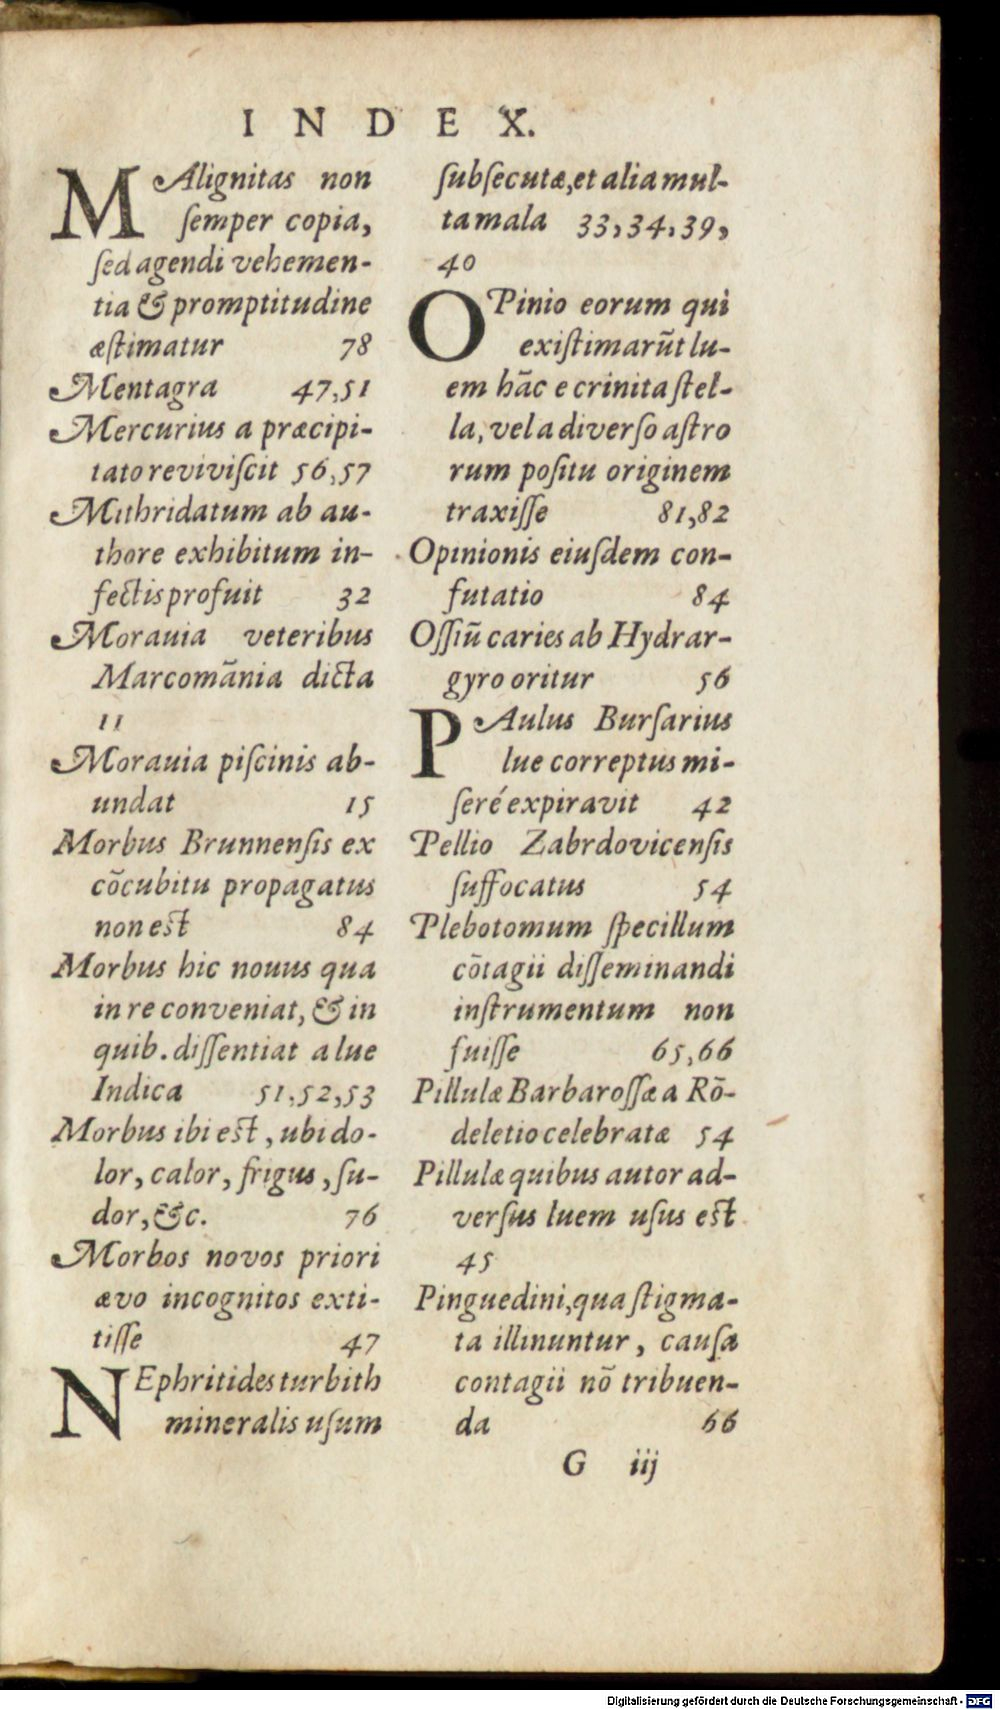 INDEX.
MAlignitas non
ſemper copia,
ſed agendi vehemen-
tia & promptitudine
æſtimatur 78
Mentagra 47,51
Mercurius a præcipi-
tato reviviſcit 56,57
Mithridatum ab au-
thore exhibitum in-
fectis profuit 32
Morauia veteribus
Marcomãnia dicta
11
Morauia piſcinis ab-
undat 15
Morbus Brunnenſis ex
cõcubitu propagatus
non eſt 84
Morbus hic nouus qua
in re conveniat, & in
quib. diſſentiat a lue
Indica 51,52,53
Morbus ibi eſt, ubi do-
lor, calor, frigus, ſu-
dor, &c. 76
Morbos novos priori
ævo incognitos exti-
tiſſe 47
NEphritides turbith
mineralis uſum
ſubſecutæ, et alia mul-
ta mala 33,34,39,
40
OPinio eorum qui
exiſtimarũt lu-
em hãc e crinita ſtel-
la, vel a diverſo aſtro
rum poſitu originem
traxiſſe 81,82
Opinionis eiuſdem con-
futatio 84
Oſſiũ caries ab Hydrar-
gyro oritur 56
PAulus Burſarius
lue correptus mi-
ſeré expiravit 42
Pellio Zabrdovicenſis
ſuffocatus 54
Plebotomum ſpecillum
cõtagii diſſeminandi
inſtrumentum non
fuiſſe 65,66
Pillulæ Barbaroſſæ a Rõ-
deletio celebratæ 54
Pillulæ quibus autor ad-
verſus luem uſus eſt
45
Pinguedini, qua ſtigma-
ta illinuntur, cauſa
contagii nõ tribuen-
da 66
G iij
Digitalisierung gefördert durch die Deutsche Forschungsgemeinschaft - DFG